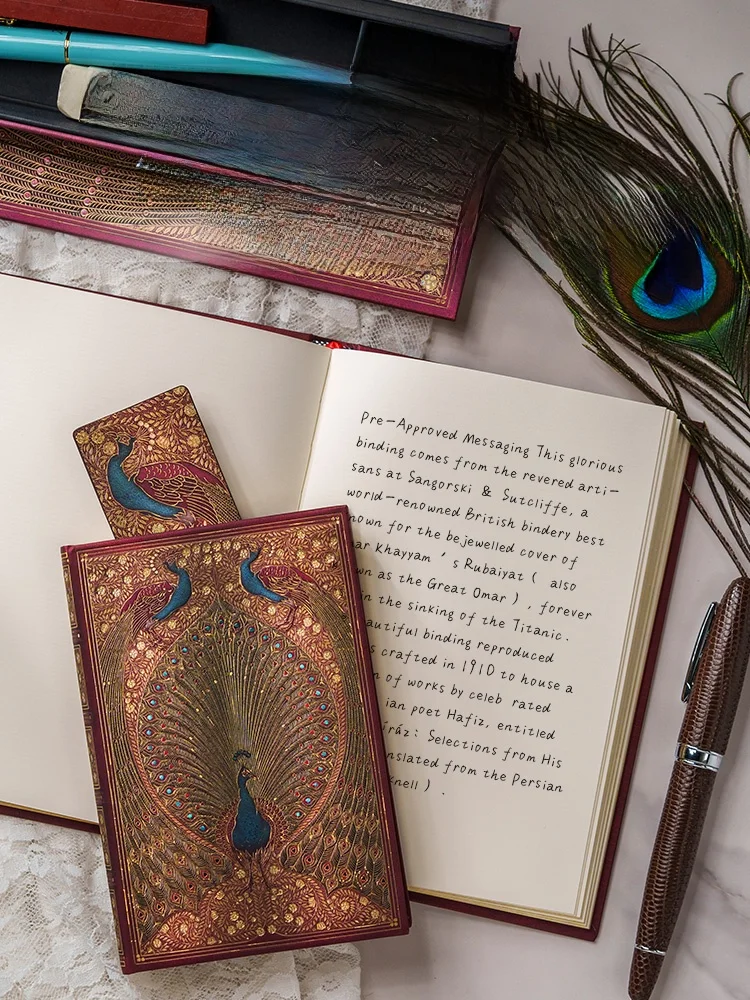 Pre-Approved Messaging This glorious
binding comes from the revered arti-
sans at Sangorski & Sutcliffe, a
world-renowned British bindery best
for the bejewelled cover of
Khayyam ' s Rubaiyat ( also
as the Great Omar ) , forever
in the sinking of the Titanic.
binding reproduced
crafted in 1910 to house a
of works by celeb rated
poet Hafiz, entitled
: Selections from His
from the Persian
) .